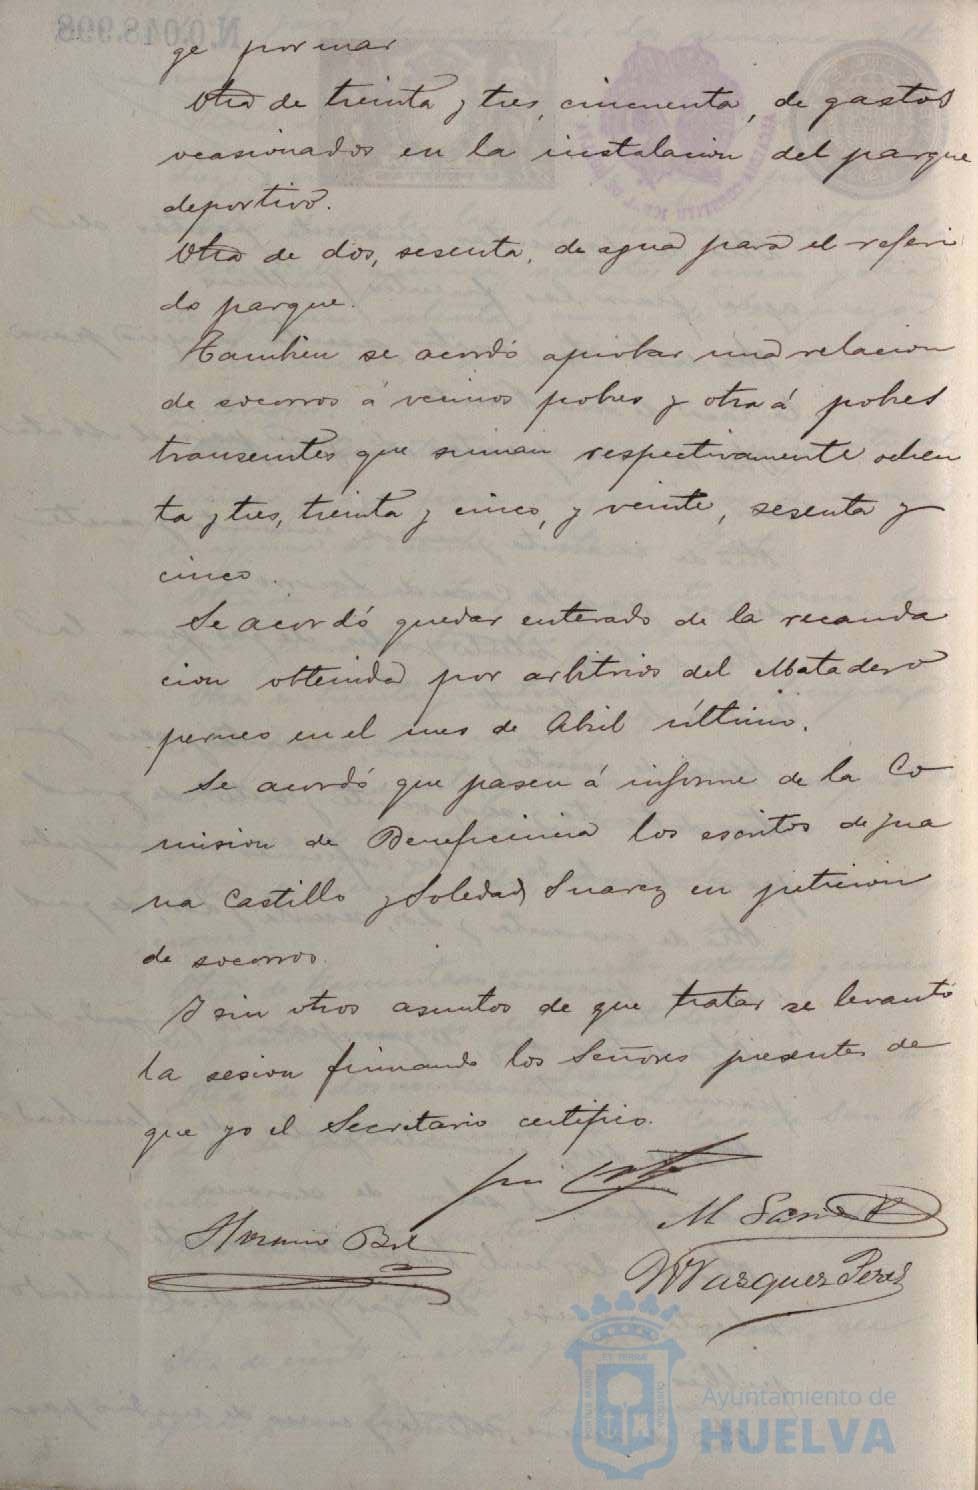 ge por mar
Otra de treinta y tres, cincuenta, de gastos
ocasionados en la instalacion del parque
deportivo.
Otra de dos, sesenta, de agua para el referi
do parque.
Tambien se acordó aprobar una relacion
de socorros á vecinos pobres y otra á pobres
transeuntes que suman respectivamente ochen
ta y tres, treinta y cinco, y veinte, sesenta y
cinco.
Se acordó quedar enterado de la recauda
cion obtenida por arbitrios del Matadero
permeo en el mes de Abril último.
Se acordó que pasen á informe de la Co
mision de Beneficencia los escritos de Jua
na Castillo y Soledad Suarez en peticion
de socorros.
Y sin otros asuntos de que tratar se levantó
la sesion firmando los Señores presentes de
que yo el Secretario certifico.
M
Vazquez Perez
N.0.048.998
ET TERRAE
PORTUS MARIS
CUSTODIA
Ayuntamiento de
HUELVA